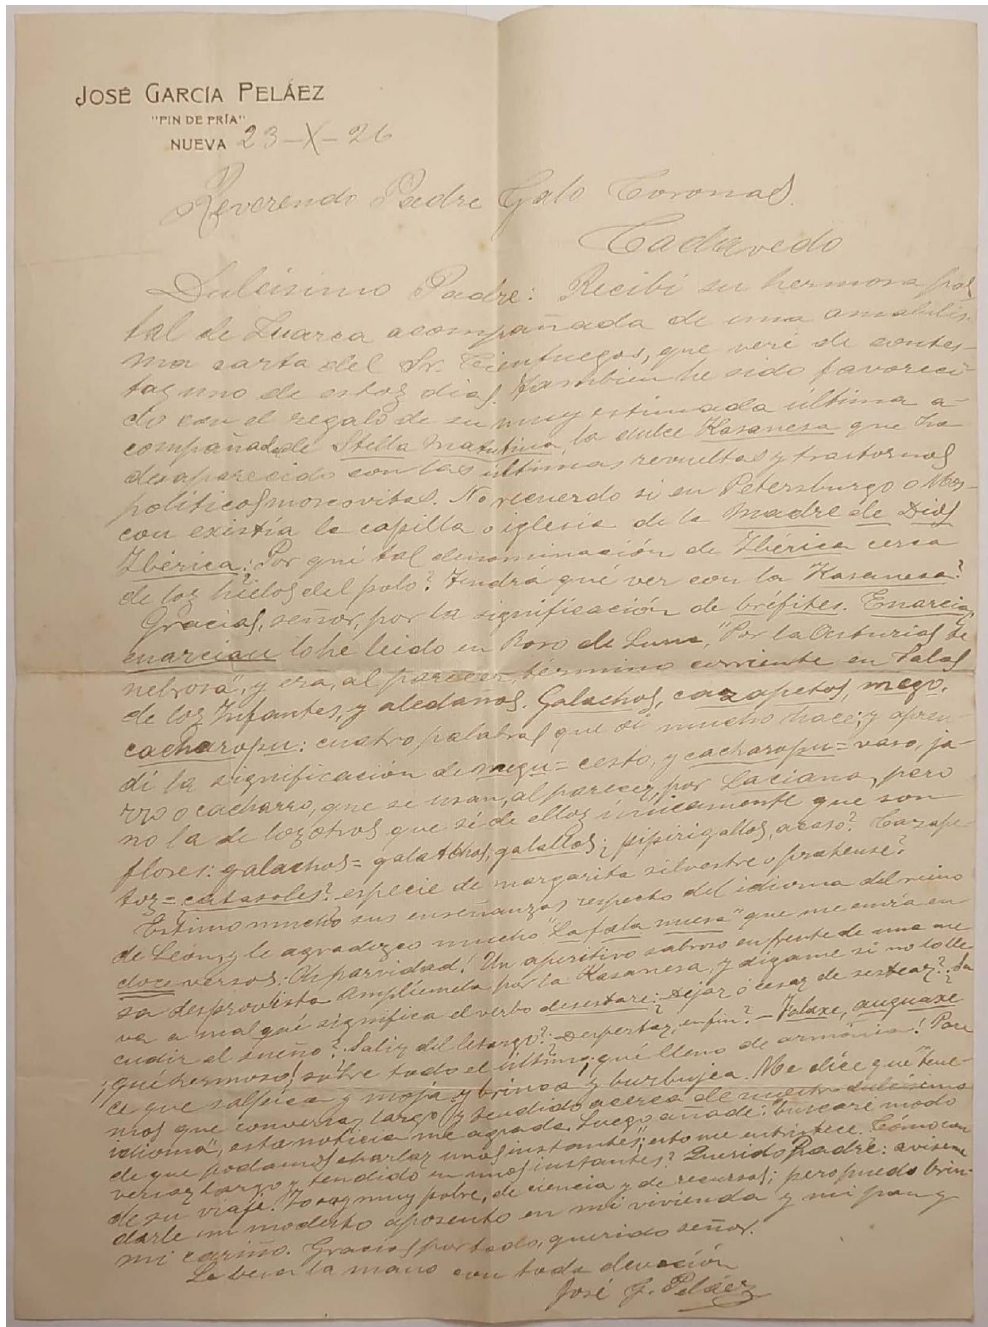 JOSÉ GARCÍA PELÁEZ
"PIN DE PRÍA"
NUEVA 23-X-26
Reverendo Padre Galo Coronas.
Cadavedo
Dulcísimo Padre: Recibí su hermosa pos
tal de Luarca acompañada de una amabilís-
ma carta del Sr. Cienfuegos, que veré de contes-
tar uno de estos días. También he sido favoreci-
do con el regalo de su muy estimada última a-
compañada de Stella Matutina, la dulce Kasanesa que ha
desaparecido con las últimas revueltas y trastornos
políticos moscovitas. No recuerdo si en Petersburgo o Mos-
cou existía la capilla o iglesia de la Madre de Dios
Ibérica: Por qué tal denominación de Ibérica cerca
de los hielos del polo? Tendrá qué ver con la Kasanesa?
Gracias, señor, por la significación de bréfites. Enarcia,
enarciau lo he leido en Roso de Luna, "Por la Asturias te
nebrosa", y era, al parecer, término corriente en Salas
de los Infantes, y aledaños. Galachos, cazapetos, mego,
cacharopu: cuatro palabras que oí mucho hace; y apren-
dí la significación de megu = cesto, y cacharopu = vaso, ja-
rro o cacharro, que se usan, al parecer, por Laciana, pero
no la de los otros que sé de ellos únicamente que son
flores: galachos = galatchos, galallos; pipirigallos, acaso? Cazape-
tos = catasoles? especie de margarita silvestre o pratense?
Estimo mucho sus enseñanzas respecto del idioma del reino
de León, y le agradezco mucho "La fala nuesa" que me envía en
doce versos. Oh parvidad! Un aperitivo sabroso enfrente de una me
sa desprovista. Amplíemela por la Kasanesa, y dígame si no lo lle
va a mal qué significa el verbo desestare: Dejar o cesar de sestear? Sa
cudir el sueño? Salir del letargo? Despertar, en fin? — Falaxe, auguaxe
¡qué hermoso! sobre todo el último; qué lleno de armonía! Pare
ce que salpica y moja y brinca y burbujea. Me dice que "tene-
mos que conversar largo y tendido acerca de nuestro dulcísimo
idioma", esta noticia me agrada. Luego añade: "buscaré modo
de que podamos charlar unos instantes", esto me entristece. Cómo con
versar largo y tendido en unos instantes? Querido Padre: avíseme
de su viaje. Yo soy muy pobre, de ciencia y de recursos; pero puedo brin-
darle un modesto aposento en mi vivienda y mi pan y
mi cariño. Gracias por todo, querido señor.
Le besa la mano con toda devoción
José G. Peláez